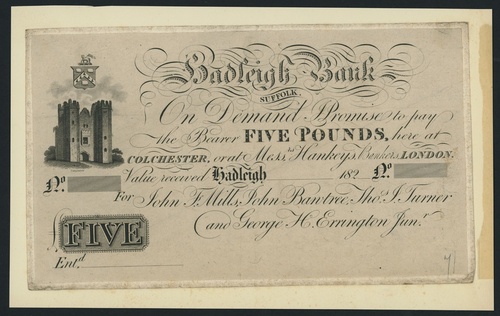 Hadleigh Bank
SUFFOLK.
On Demand I Promise to pay
the Bearer FIVE POUNDS, here at
COLCHESTER, or at Mess.rs Hankeys, Bankers, LONDON.
Value received Hadleigh 182
No. No.
For John F. Mills, John Bawtree, Thos. J. Turner
and George H. Errington Junr.
FIVE
Entd.
71